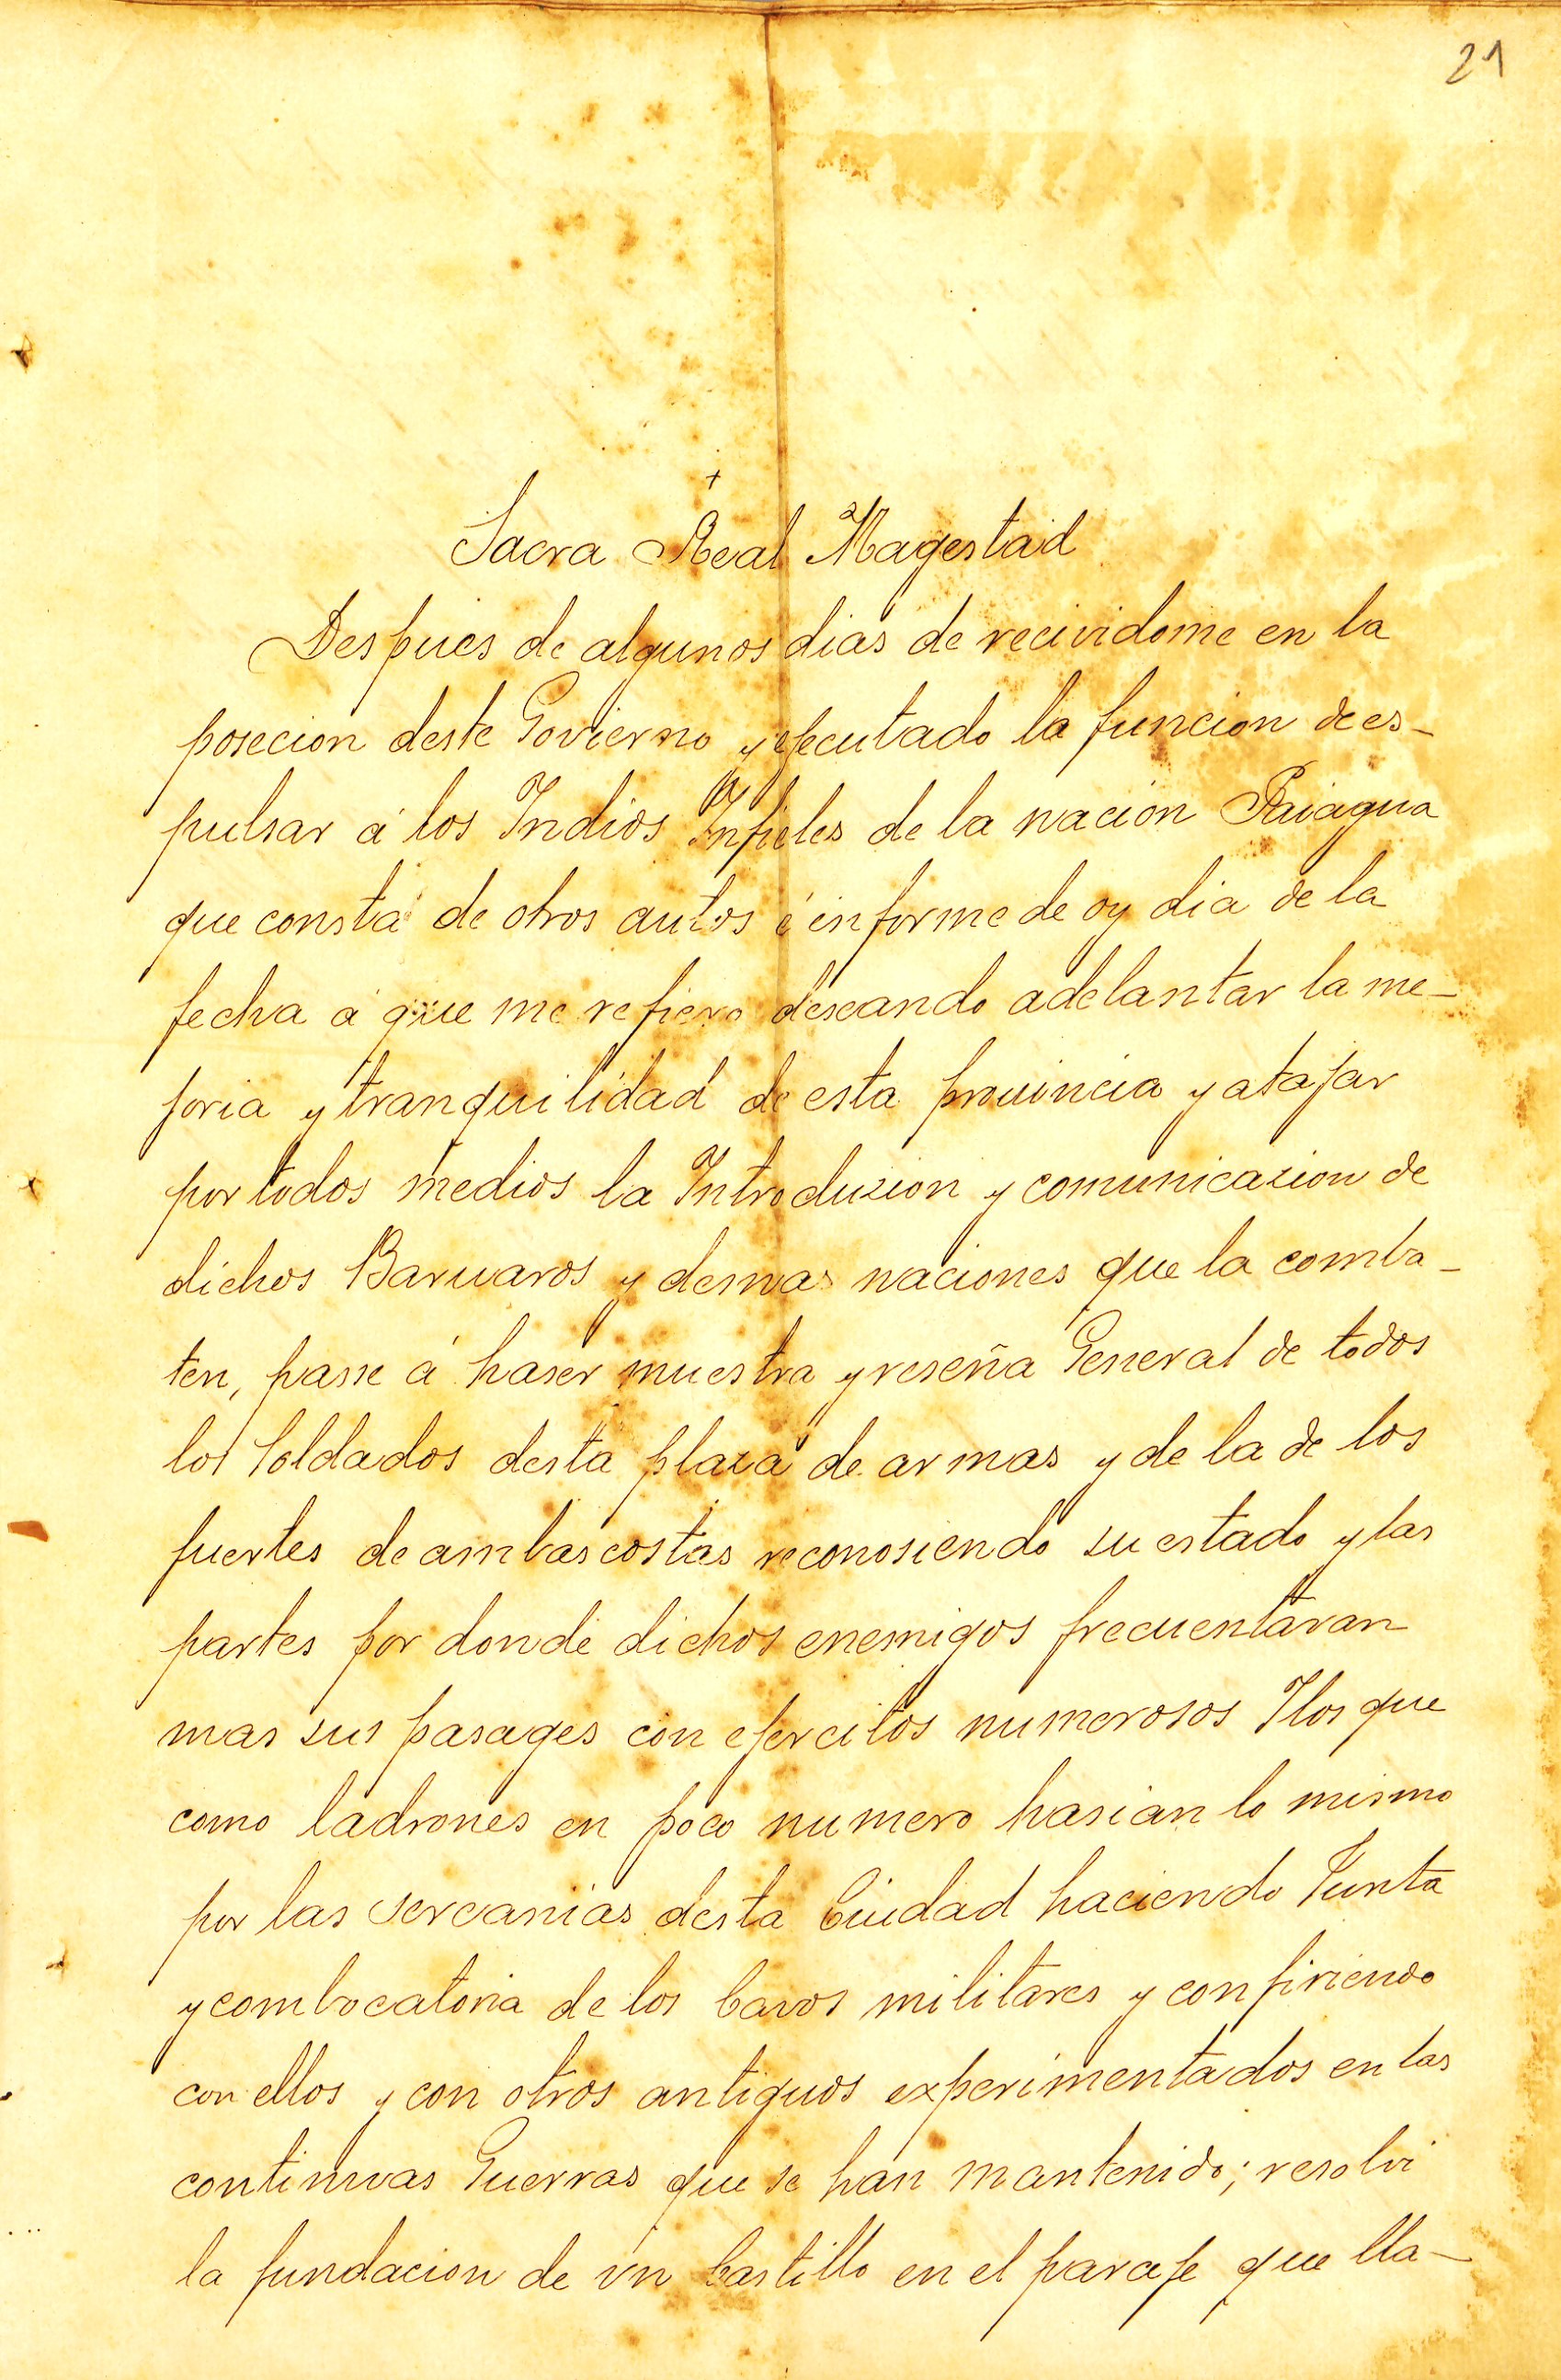 21
+
Sacra Real Magestad
Despues de algunos dias de recividome en la
posecion deste Govierno y ejecutado la funcion de es-
pulsar á los Indios Infieles de la nacion Paiagua
que consta de otros autos é informe de oy dia de la
fecha á que me refiero deseando adelantar la me-
joria y tranquilidad de esta prouincia y atajar
por todos medios la Introduzion y comunicazion de
dichos Baruaros y demas naciones que la comba-
ten, passe á haser muestra y reseña General de todos
los Soldados desta plaza de armas y de la de los
fuertes de ambas costas reconosiendo su estado y las
partes por donde dichos enemigos frecuentavan
mas sus pasages con ejercitos numerosos Y los que
como ladrones en poco numero hasian lo mismo
por las sercanias desta Ciudad haciendo Junta
y combocatoria de los Cavos militares y confiriendo
con ellos y con otros antiguos experimentados en las
continuas Guerras que se han mantenido; resolvi
la fundacion de vn Castillo en el paraje que lla-